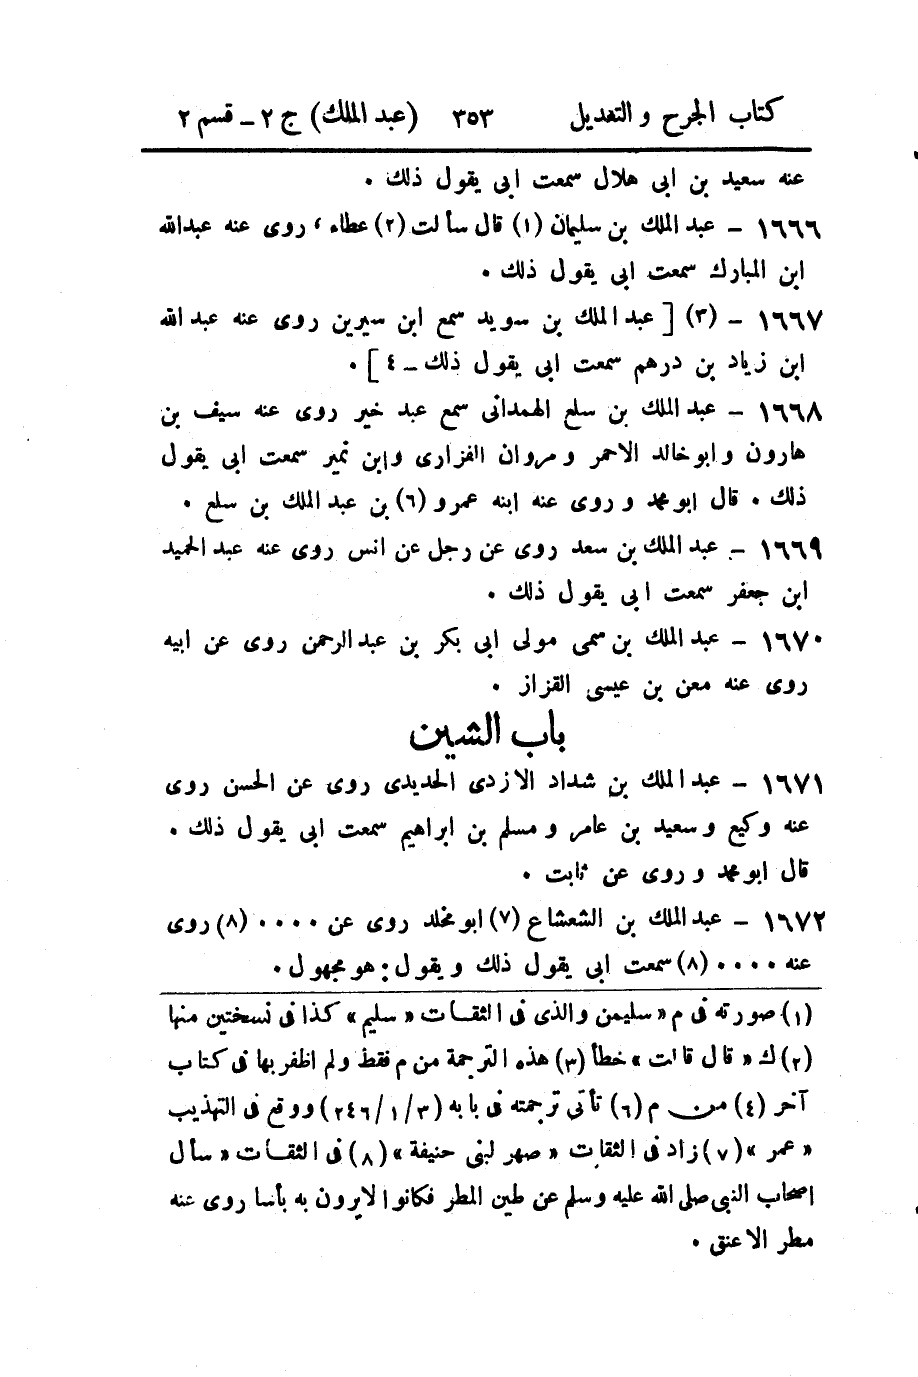 كتاب الجرح والتعديل ٣٥٣ (عبد الملك) ج ٢ - قسم ٢
عنه سعيد بن ابى هلال سمعت ابى يقول ذلك .
١٦٦٦ - عبد الملك بن سليمان (١) قال سألت (٢) عطاء، روى عنه عبدالله
ابن المبارك سمعت ابى يقول ذلك .
١٦٦٧ - (٣) [ عبد الملك بن سويد سمع ابن سيرين روى عنه عبد الله
ابن زياد بن درهم سمعت ابى يقول ذلك - ٤ ] .
١٦٦٨ - عبد الملك بن سلع الهمدانى سمع عبد خير روى عنه سيف بن
هارون وابو خالد الاحمر ومروان الفزارى وابن نمير سمعت ابى يقول
ذلك . قال ابو محمد وروى عنه ابنه عمرو (٦) بن عبد الملك بن سلع .
١٦٦٩ - عبد الملك بن سعد روى عن رجل عن انس روى عنه عبد الحميد
ابن جعفر سمعت ابى يقول ذلك .
١٦٧٠ - عبد الملك بن سمى مولى ابى بكر بن عبد الرحمن روى عن ابيه
روى عنه معن بن عيسى القزاز .
باب الشين
١٦٧١ - عبد الملك بن شداد الازدى الحديدى روى عن الحسن روى
عنه وكيع وسعيد بن عامر ومسلم بن ابراهيم سمعت ابى يقول ذلك .
قال ابو محمد وروى عن ثابت .
١٦٧٢ - عبد الملك بن الشعشاع (٧) ابو مخلد روى عن .... (٨) روى
عنه .... (٨) سمعت ابى يقول ذلك ويقول: هو مجهول .
(١) صورته فى م « سليمن والذى فى الثقات « سليم » كذا فى نسختين منها
(٢) ك « قال قالت » خطأ (٣) هذه الترجمة من م فقط ولم اظفر بها فى كتاب
آخر (٤) من م (٦) تأتى ترجمته فى بابه (٢٤٦/١/٣) ووقع فى التهذيب
« عمر » (٧) زاد فى الثقات « صهر لبنى حنيفة » (٨) فى الثقات « سأل
اصحاب النبى صلى الله عليه وسلم عن طين المطر فكانوا لا يرون به بأسا روى عنه
مطر الاعنق .